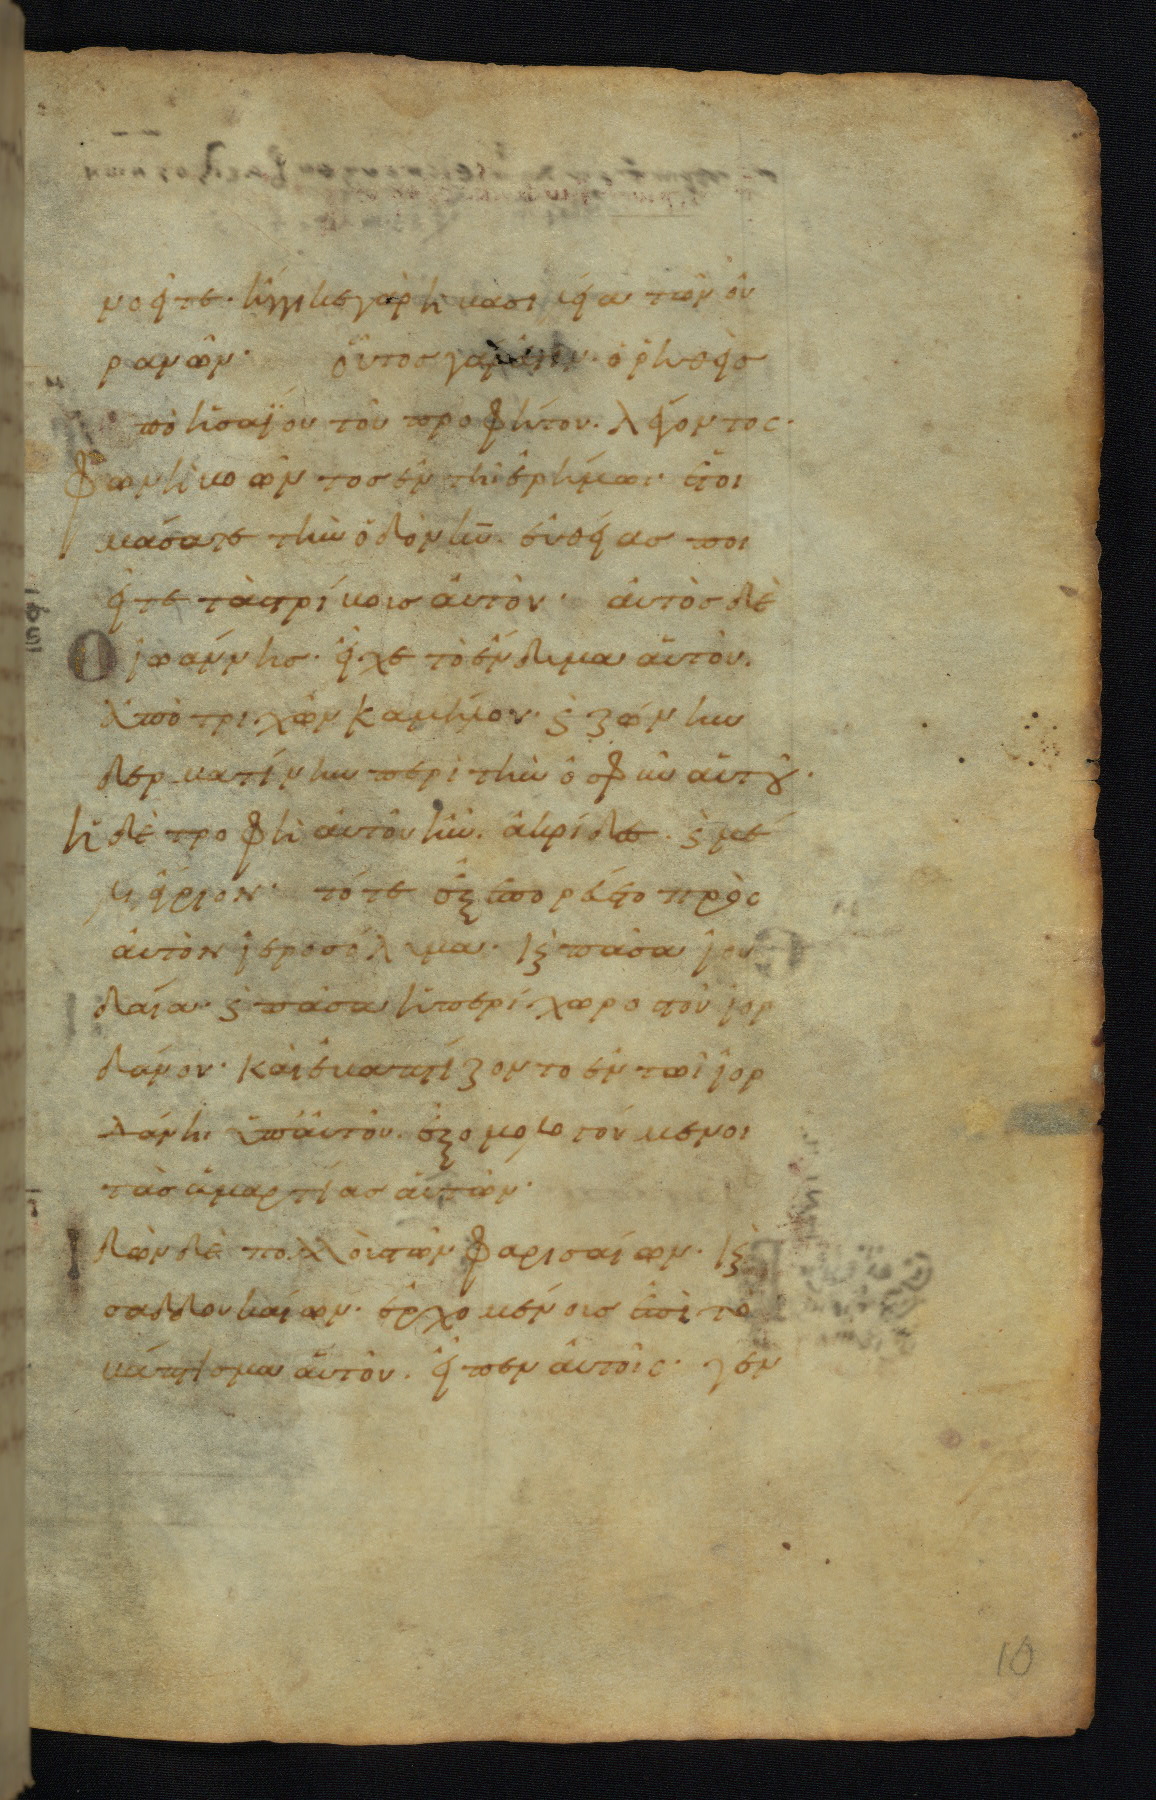 νοεῖτε· ἤγγικε γὰρ ἡ βασιλεία τῶν οὐ
ρανῶν· οὗτος γάρ ἐστιν· ὁ ῥηθεὶς
ὑπὸ ἡσαΐου τοῦ προφήτου· λέγοντος·
φωνὴ βοῶντος ἐν τῆι ἐρήμωι· ἑτοι
μάσατε τὴν ὁδὸν κ̅υ̅· εὐθείας ποι
εῖτε τὰς τρίβους αὐτοῦ· αὐτὸς δὲ
ὁ ἰωάννης· εἶχε τὸ ἔνδυμα αὐτοῦ·
ἀπὸ τριχῶν καμήλου· ϛ ζώνην
δερματίνην περὶ τὴν ὀσφὺν αὐτοῦ·
ἡ δὲ τροφὴ αὐτοῦ ἦν· ἀκρίδες· ϛ μέ
λι ἄγριον· τότε ἐξεπορεύετο πρὸς
αὐτὸν ἱεροσόλυμα· ϗ πᾶσα ἰου
δαία· ϛ πᾶσα ἡ περίχωρος τοῦ ἰορ
δάνου· καὶ ἐβαπτίζοντο ἐν τῶι ἰορ
δάνηι ὑπ' αὐτοῦ· ἐξομολογούμενοι
τὰς ἁμαρτίας αὐτῶν·
Ἰδὼν δὲ πολλοὺς τῶν φαρισαίων· ϗ
σαδδουκαίων· ἐρχομένους ἐπὶ τὸ
βάπτισμα αὐτοῦ· εἶπεν αὐτοῖς· γεν
10